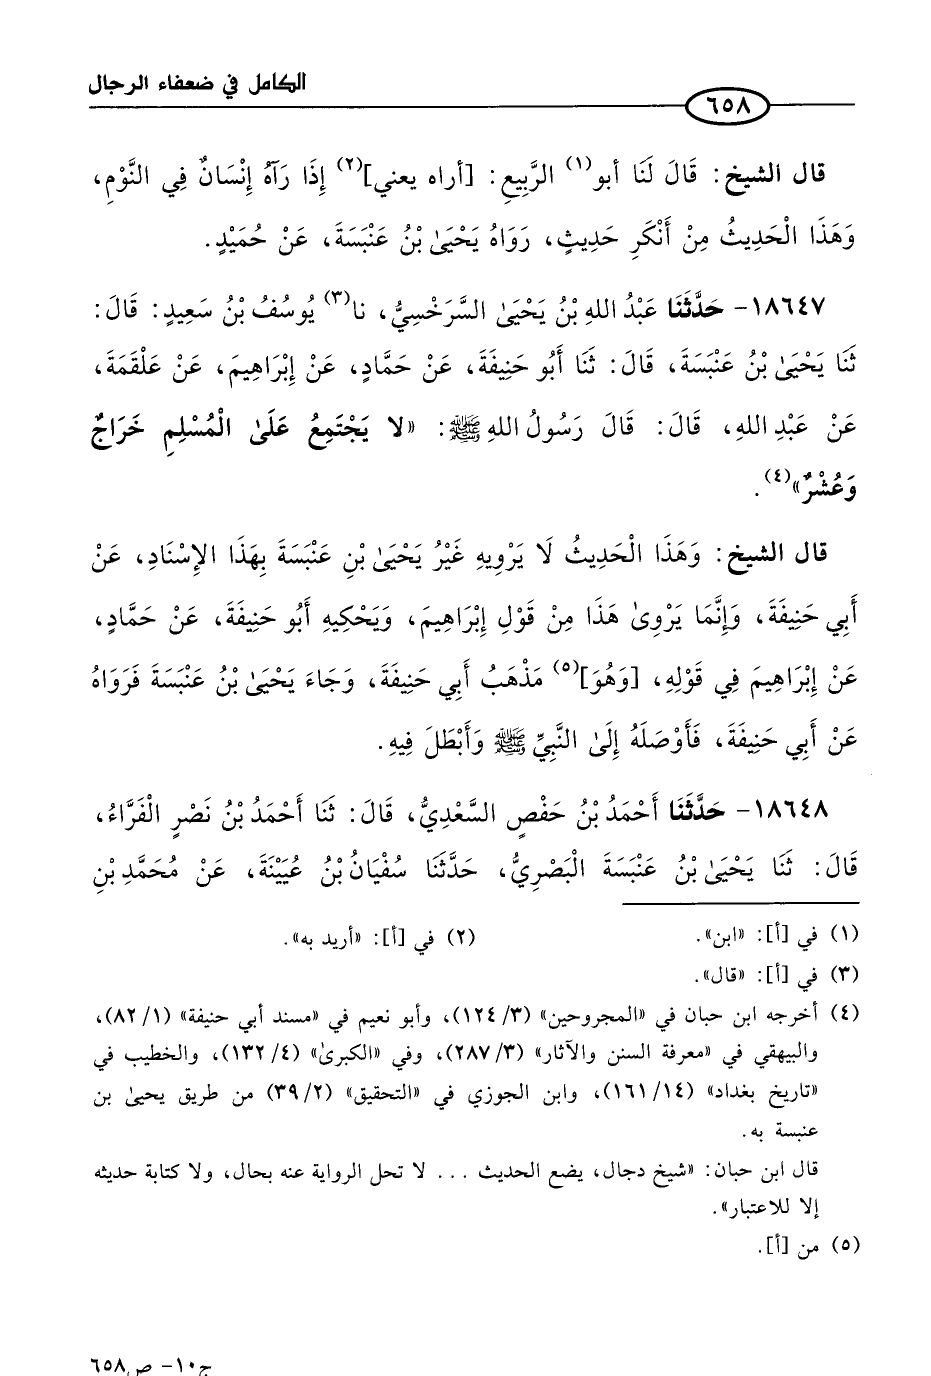 الكامل في ضعفاء الرجال
٦٥٨
قال الشيخ: قَالَ لَنَا أبو(١) الرَّبِيعِ: [أراه يعني](٢) إِذَا رَآهُ إِنْسَانٌ فِي النَّوْمِ،
وَهَذَا الْحَدِيثُ مِنْ أَنْكَرِ حَدِيثٍ، رَوَاهُ يَحْيَىٰ بْنُ عَنْبَسَةَ، عَنْ حُمَيْدٍ.
١٨٦٤٧- حَدَّثَنَا عَبْدُ اللهِ بْنُ يَحْيَىٰ السَّرَخْسِيُّ، نا(٣) يُوسُفُ بْنُ سَعِيدٍ: قَالَ:
ثَنَا يَحْيَىٰ بْنُ عَنْبَسَةَ، قَالَ: ثَنَا أَبُو حَنِيفَةَ، عَنْ حَمَّادٍ، عَنْ إِبْرَاهِيمَ، عَنْ عَلْقَمَةَ،
عَنْ عَبْدِ اللهِ، قَالَ: قَالَ رَسُولُ اللهِ ﷺ: «لا يَجْتَمِعُ عَلَىٰ الْمُسْلِمِ خَرَاجٌ
وَعُشْرٌ»(٤).
قال الشيخ: وَهَذَا الْحَدِيثُ لَا يَرْوِيهِ غَيْرُ يَحْيَىٰ بْنِ عَنْبَسَةَ بِهَذَا الإِسْنَادِ، عَنْ
أَبِي حَنِيفَةَ، وَإِنَّمَا يَرْوِىٰ هَذَا مِنْ قَوْلِ إِبْرَاهِيمَ، وَيَحْكِيهِ أَبُو حَنِيفَةَ، عَنْ حَمَّادٍ،
عَنْ إِبْرَاهِيمَ فِي قَوْلِهِ، [وَهُوَ](٥) مَذْهَبُ أَبِي حَنِيفَةَ، وَجَاءَ يَحْيَىٰ بْنُ عَنْبَسَةَ فَرَوَاهُ
عَنْ أَبِي حَنِيفَةَ، فَأَوْصَلَهُ إِلَىٰ النَّبِيِّ ﷺ وَأَبْطَلَ فِيهِ.
١٨٦٤٨- حَدَّثَنَا أَحْمَدُ بْنُ حَفْصٍ السَّعْدِيُّ، قَالَ: ثَنَا أَحْمَدُ بْنُ نَصْرٍ الْفَرَّاءُ،
قَالَ: ثَنَا يَحْيَىٰ بْنُ عَنْبَسَةَ الْبَصْرِيُّ، حَدَّثَنَا سُفْيَانُ بْنُ عُيَيْنَةَ، عَنْ مُحَمَّدِ بْنِ
(١) في [أ]: «ابن». (٢) في [أ]: «أريد به».
(٣) في [أ]: «قال».
(٤) أخرجه ابن حبان في «المجروحين» (٣/ ١٢٤)، وأبو نعيم في «مسند أبي حنيفة» (١/ ٨٢)،
والبيهقي في «معرفة السنن والآثار» (٣/ ٢٨٧)، وفي «الكبرىٰ» (٤/ ١٣٢)، والخطيب في
«تاريخ بغداد» (١٤/ ١٦١)، وابن الجوزي في «التحقيق» (٢/ ٣٩) من طريق يحيىٰ بن
عنبسة به.
قال ابن حبان: «شيخ دجال، يضع الحديث ... لا تحل الرواية عنه بحال، ولا كتابة حديثه
إلا للاعتبار».
(٥) من [أ].
ج١٠- ص٦٥٨